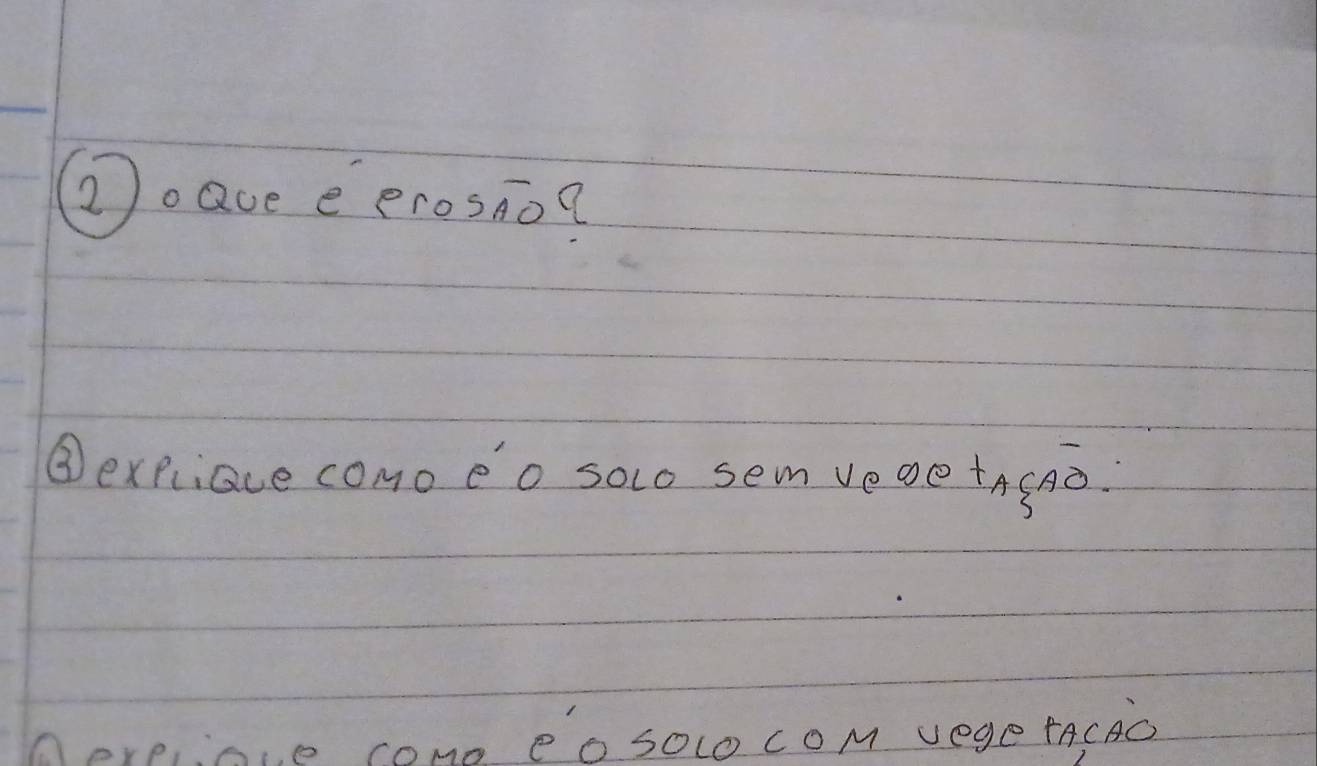 ② o Que é erosão?
③ explique como é o solo sem vegetação.
explique como é o solo com vegetação